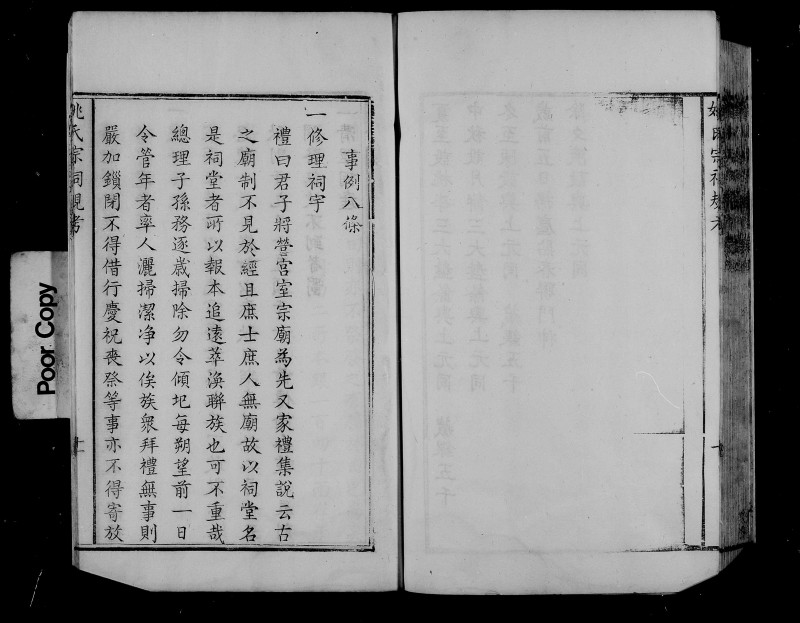 事例八條
一修理祠宇
禮曰君子將營宮室宗廟為先又家禮集說云古
之廟制不見於經且庶士庶人無廟故以祠堂名
是祠堂者所以報本追遠萃渙聯族也可不重哉
總理子孫務逐歲掃除勿令傾圮每朔望前一日
令管年者率人灑掃潔净以俟族衆拜禮無事則
嚴加鎖閉不得借行慶祝喪祭等事亦不得寄放
氏宗祠規
Poor Copy